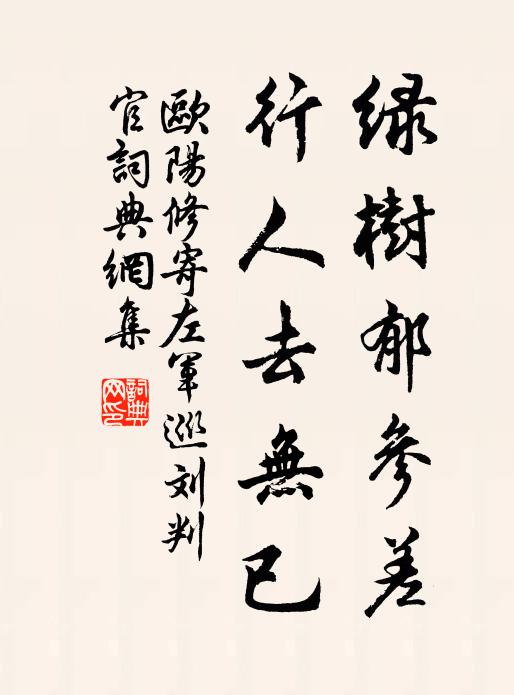 緑樹郁參差
行人去無已
歐陽修寄左軍巡刘判
官詞典網集
詞典
网印